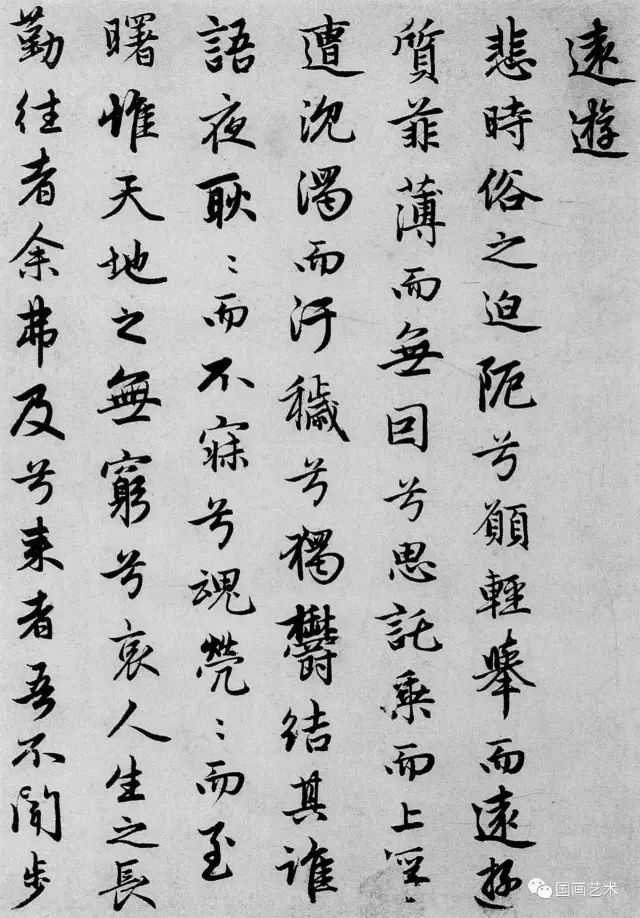 遠遊
悲時俗之迫阨兮願輕舉而遠遊
質菲薄而無因兮思託乘而上
遭沉濁而汙穢兮獨鬱結其誰
語夜耿〻而不寐兮魂煢〻而至
曙惟天地之無窮兮哀人生之長
勤往者余弗及兮来者吾不聞步
国画艺术